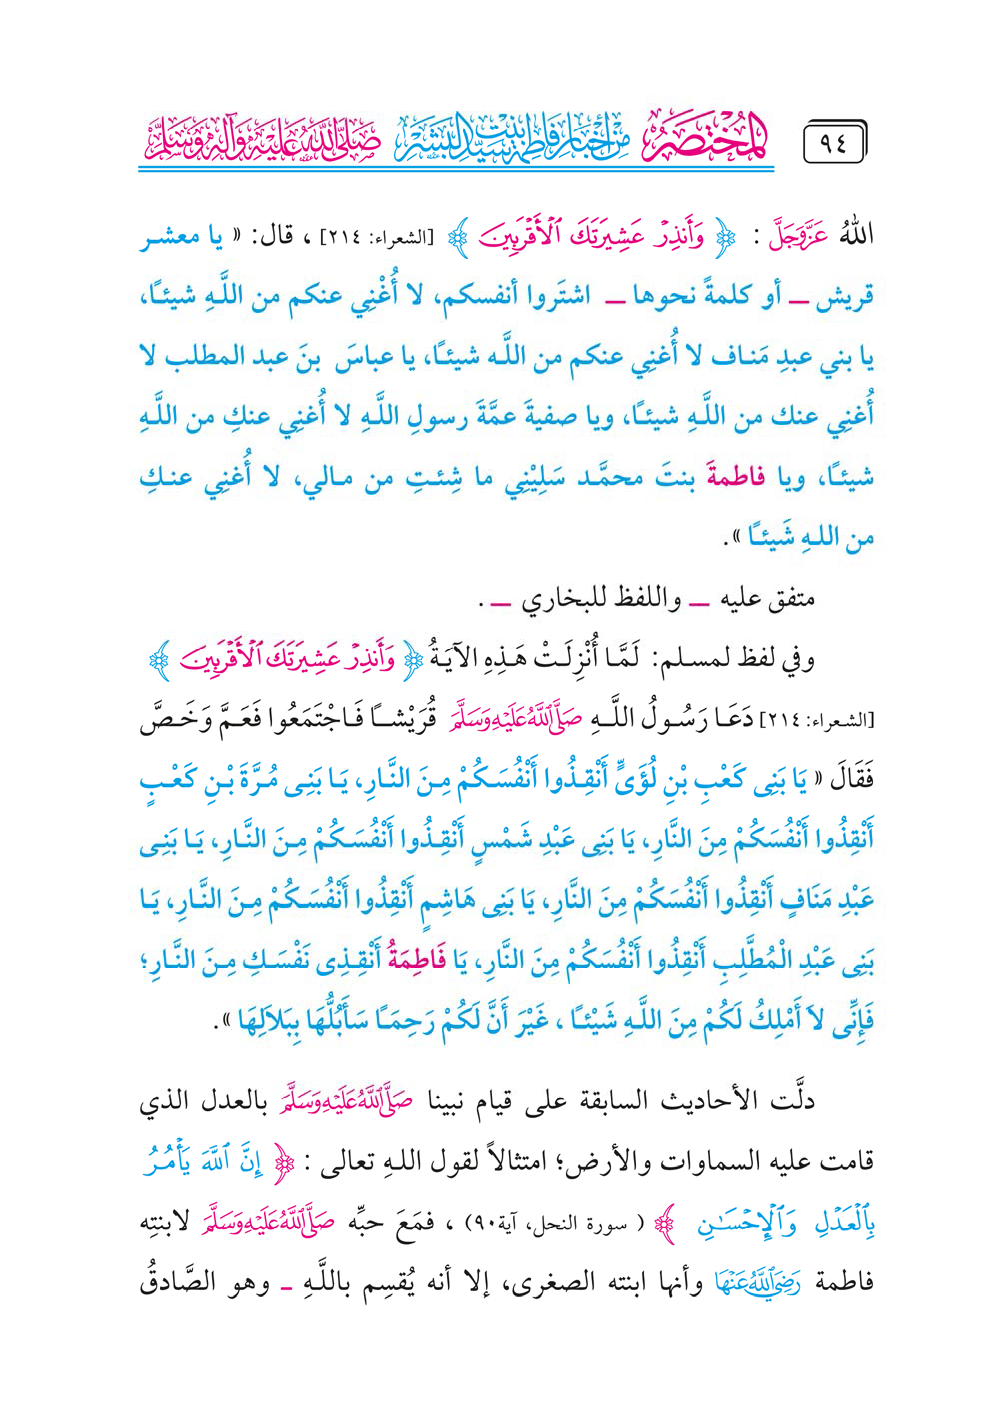 ٩٤
المختصر من أخبار فاطمة بنت سيد البشر صَلَّى اللَّهُ عَلَيْهِ وَآلِهِ وَسَلَّمَ
اللهُ عَزَّوَجَلَّ : ﴿ وَأَنذِرْ عَشِيرَتَكَ ٱلْأَقْرَبِينَ ﴾ [الشعراء: ٢١٤] ، قال: « يا معشـر
قريش ــ أو كلمةً نحوها ــ اشتَروا أنفسكم، لا أُغْنِي عنكم من اللَّـهِ شيئـًا،
يا بني عبدِ مَنـاف لا أُغنِي عنكم من اللَّـه شيئـًا، يا عباسَ بنَ عبد المطلب لا
أُغنِي عنك من اللَّـهِ شيئـًا، ويا صفيةَ عمَّةَ رسولِ اللَّـهِ لا أُغنِي عنكِ من اللَّـهِ
شيئـًا، ويا فاطمةَ بنتَ محمَّـد سَلِيْنِي ما شِئـتِ من مـالي، لا أُغنِي عنـكِ
من اللـهِ شَيئـًا ».
متفق عليه ــ واللفظ للبخاري ــ .
وفي لفظ لمسلم: لَمَّـا أُنْزِلَـتْ هَـذِهِ الآيَـةُ ﴿ وَأَنذِرْ عَشِيرَتَكَ ٱلْأَقْرَبِينَ ﴾
[الشعراء: ٢١٤] دَعَـا رَسُـولُ اللَّـهِ صَلَّى اللَّهُ عَلَيْهِ وَسَلَّمَ قُرَيْشـًا فَـاجْتَمَعُوا فَعَـمَّ وَخَـصَّ
فَقَالَ « يَا بَنِى كَعْبِ بْنِ لُؤَىٍّ أَنْقِذُوا أَنْفُسَكُمْ مِنَ النَّـارِ، يَـا بَنِـى مُـرَّةَ بْـنِ كَعْـبٍ
أَنْقِذُوا أَنْفُسَكُمْ مِنَ النَّارِ، يَا بَنِى عَبْدِ شَمْسٍ أَنْقِـذُوا أَنْفُسَـكُمْ مِـنَ النَّـارِ، يَـا بَنِـى
عَبْدِ مَنَافٍ أَنْقِذُوا أَنْفُسَكُمْ مِنَ النَّارِ، يَا بَنِى هَاشِمٍ أَنْقِذُوا أَنْفُسَـكُمْ مِـنَ النَّـارِ، يَـا
بَنِى عَبْدِ الْمُطَّلِبِ أَنْقِذُوا أَنْفُسَكُمْ مِنَ النَّارِ، يَا فَاطِمَةُ أَنْقِـذِى نَفْسَـكِ مِـنَ النَّـارِ؛
فَإِنِّى لاَ أَمْلِكُ لَكُمْ مِنَ اللَّـهِ شَيْئـًا ، غَيْرَ أَنَّ لَكُمْ رَحِمـًا سَأَبُلُّهَا بِبَلاَلِهَا ».
دلَّت الأحاديث السابقة على قيام نبينا صَلَّى اللَّهُ عَلَيْهِ وَسَلَّمَ بالعدل الذي
قامت عليه السماوات والأرض؛ امتثالاً لقول اللـهِ تعالى : ﴿ إِنَّ ٱللَّهَ يَأْمُرُ
بِٱلْعَدْلِ وَٱلْإِحْسَـٰنِ ﴾ ( سورة النحل، آية٩٠) ، فمَعَ حبِّه صَلَّى اللَّهُ عَلَيْهِ وَسَلَّمَ لابنتِه
فاطمة رَضِيَ اللَّهُ عَنْهَا وأنها ابنته الصغرى، إلا أنه يُقسِم باللَّـهِ ـ وهو الصَّادقُ